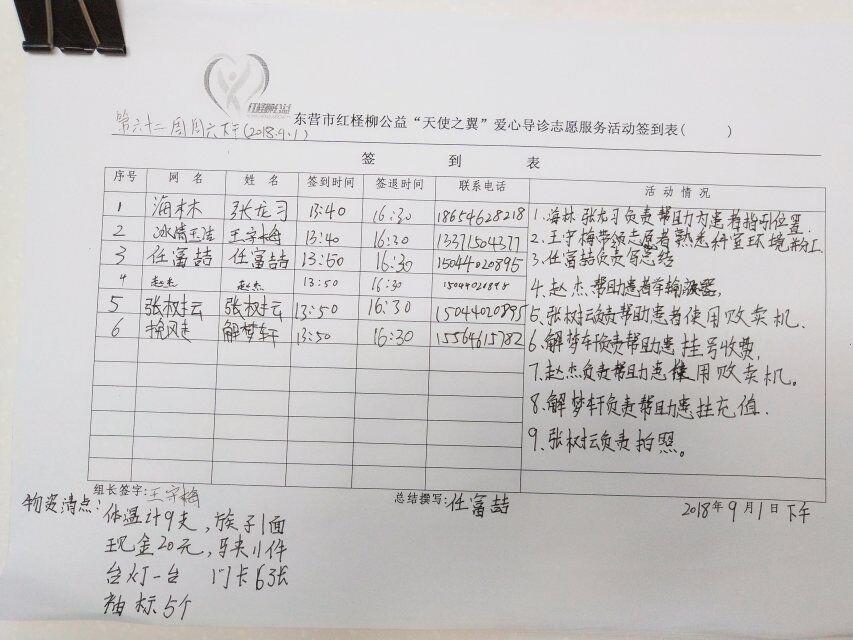 红柽柳公益
东营市红柽柳公益“天使之翼”爱心导诊志愿服务活动签到表( )
第六十二周周六下午(2018.9.1)
签 到 表
序号 网 名 姓 名 签到时间 签退时间 联系电话 活 动 情 况
1 海林 张龙习 13:40 16:30 18654628218
2 冰清玉洁 王宇梅 13:40 16:30 13371504377
3 任富喆 任富喆 13:50 16:30 15044020895
4 赵杰 赵杰 13:50 16:30 15044020895
5 张树坛 张树坛 13:50 16:30 15044020895
6 挽风走 解梦轩 13:50 16:30 15564615782
1.海林 张龙习负责帮助为患者指引位置.
2.王宇梅带领志愿者熟悉科室环境 分工.
3.任富喆负责写总结
4.赵杰帮助患者举输液器,
5.张树坛负责帮助患者使用贩卖机.
6.解梦轩负责帮助患挂号收费,
7.赵杰负责帮助患使用贩卖机。
8.解梦轩负责帮助患挂充值.
9.张树坛负责拍照。
组长签字:王宇梅 总结撰写:任富喆 2018年9月1日下午
物资清点:
体温计9支,旗子1面
现金20元,马夹11件
台灯一台 门卡63张
袖标5个